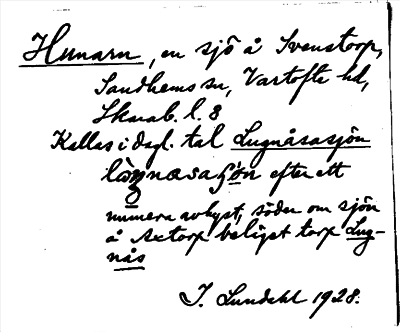 Hunarn, en sjö å Svenstorp,
Sandhems sn, Vartofta hd,
Skarab. l. 8
Kallas i dagl. tal Lugnåsasjön
efter ett
numera avhyst, söder om sjön
å Axtorp beläget torp Lug-
nås
J. Lundahl 1928.